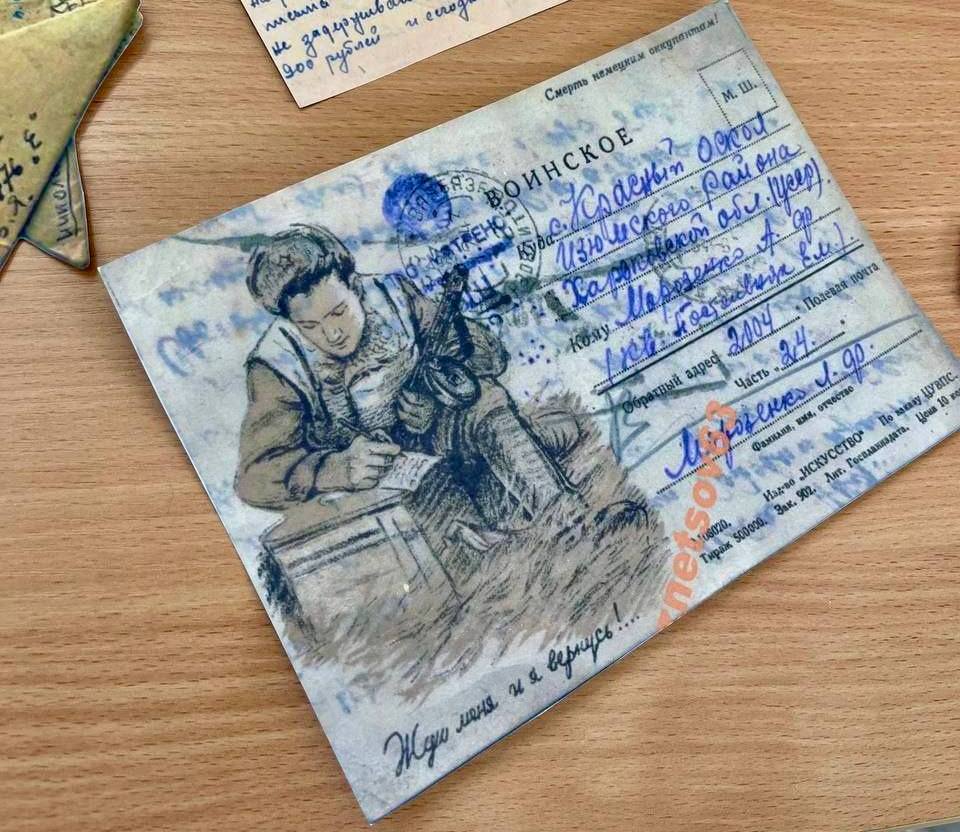 письма
не задерживай
900 рублей и сегодн
Смерть немецким оккупантам!
М. Ш.
ВОИНСКОЕ
Куда: с. Красный Оскол
Изюмского района
Харьковской обл. (УССР).
Кому Морозенко А. др
Обратный адрес "2004". Полевая почта
Часть "24."
Морозенко Л. др.
Фамилия, имя, отчество
Изд-во „ИСКУССТВО" По заказу ЦУАПС.
Тираж 500000. Зак. 902. Лит. Госпланиздата. Цена 10 коп
Жди меня и я вернусь!...
netsov63